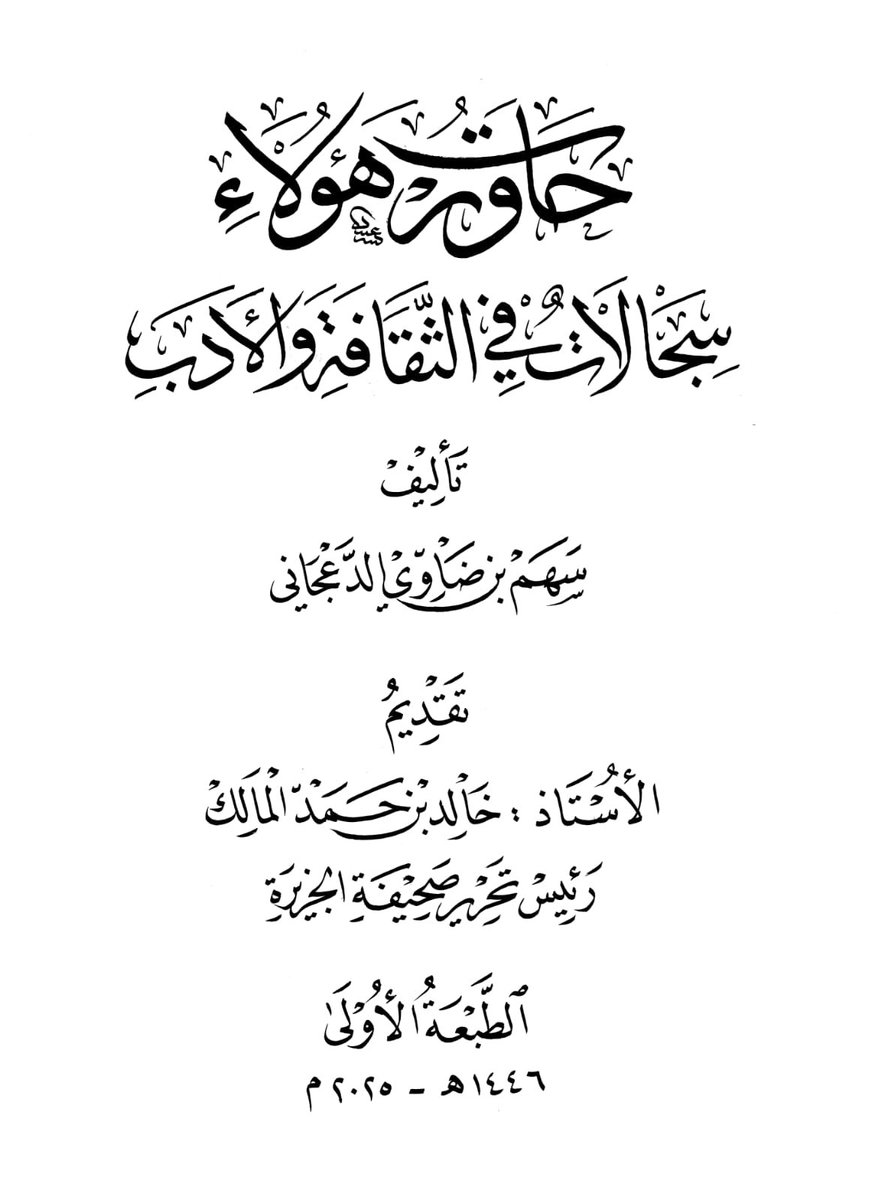 حَاوَرْتُ هَؤُلَاءِ
سِجَالَاتٌ فِي الثَّقَافَةِ وَالأَدَبِ
تَأْلِيفُ
سَهْم بن ضَاوِي الدَّعْجَاني
تَقْدِيمُ
الأُسْتَاذ : خَالِد بْن حَمَد المَالِك
رَئِيسْ تَحْرِير صَحِيفَةِ الجَزِيرَةِ
الطَّبْعَةُ الأُوْلَى
١٤٤٦هـ - ٢٠٢٥م